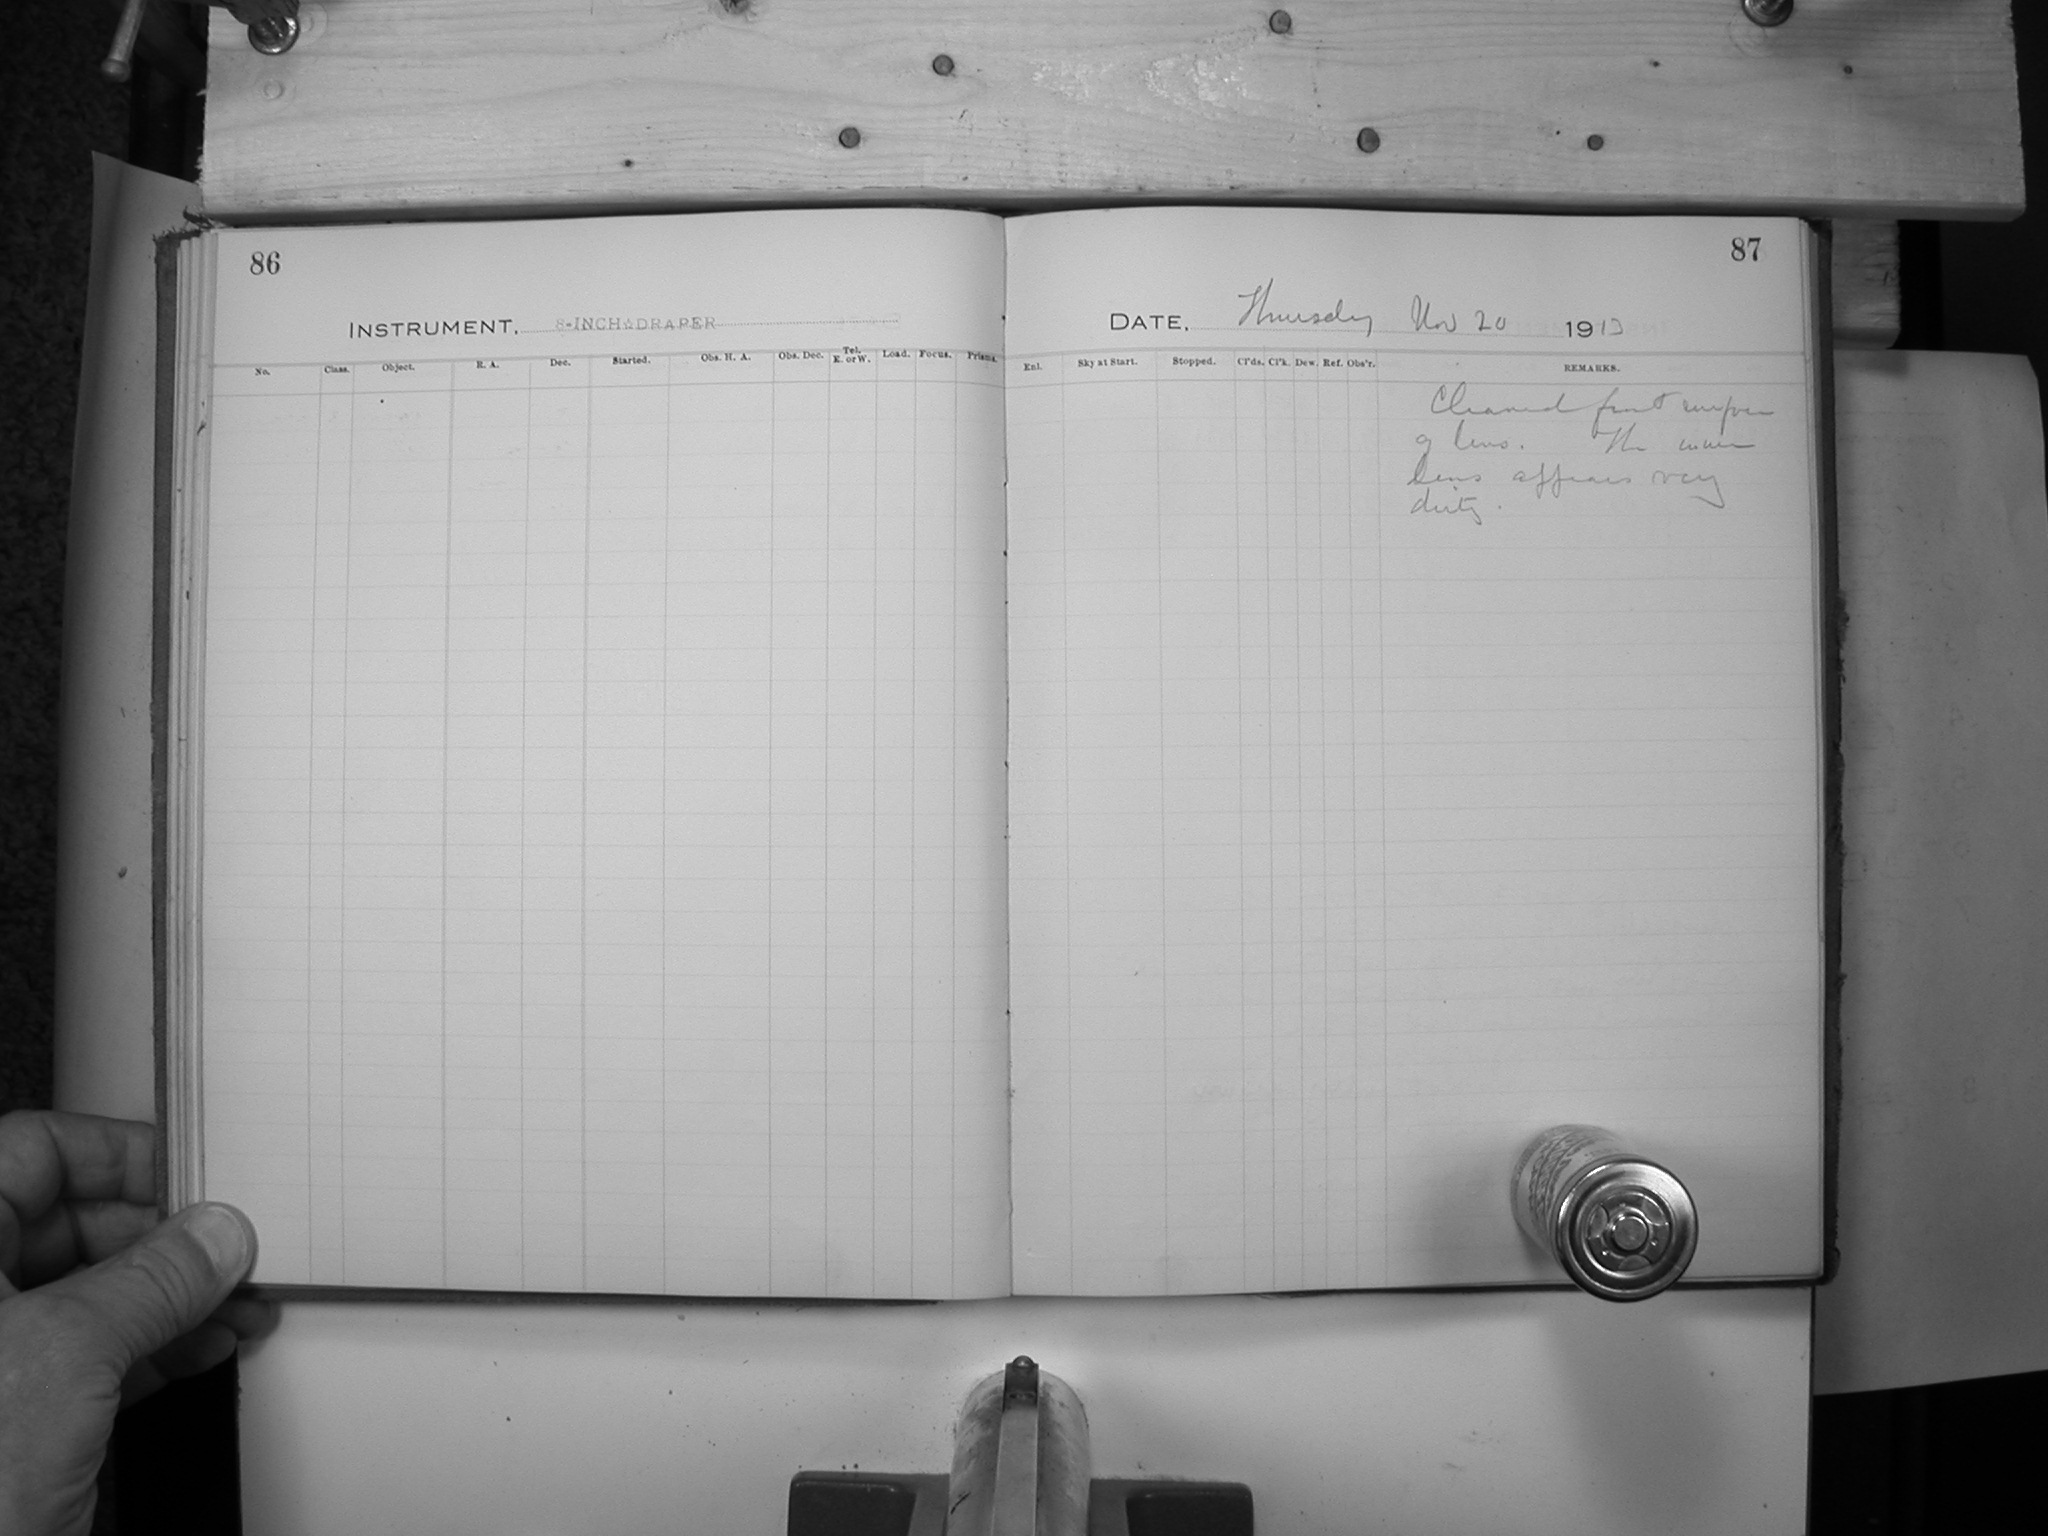 86
INSTRUMENT, 8-INCH DRAPER
No. Class. Object. R. A. Dec. Started. Obs. H. A. Obs. Dec. Tel. E. or W. Load. Focus. Prisms.
87
DATE, Thursday Nov 20 1913
Enl. Sky at Start. Stopped. Cl'ds. Cl'k. Dew. Ref. Obs'r. REMARKS.
Cleaned front surface
of lens. The inner
lens appears very
dirty.